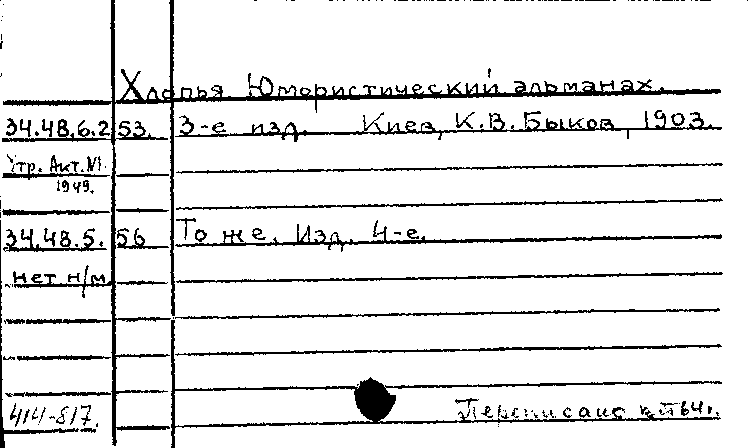 Хлопья. Юмористический альманах.
34.48.6.2 53. 3-е изд. Киев, К.В. Быков, 1903.
Утр. Акт. №1.
1949.
34.48.5. 56 То же. Изд. 4-е.
нет н/м.
414-817. Переписано